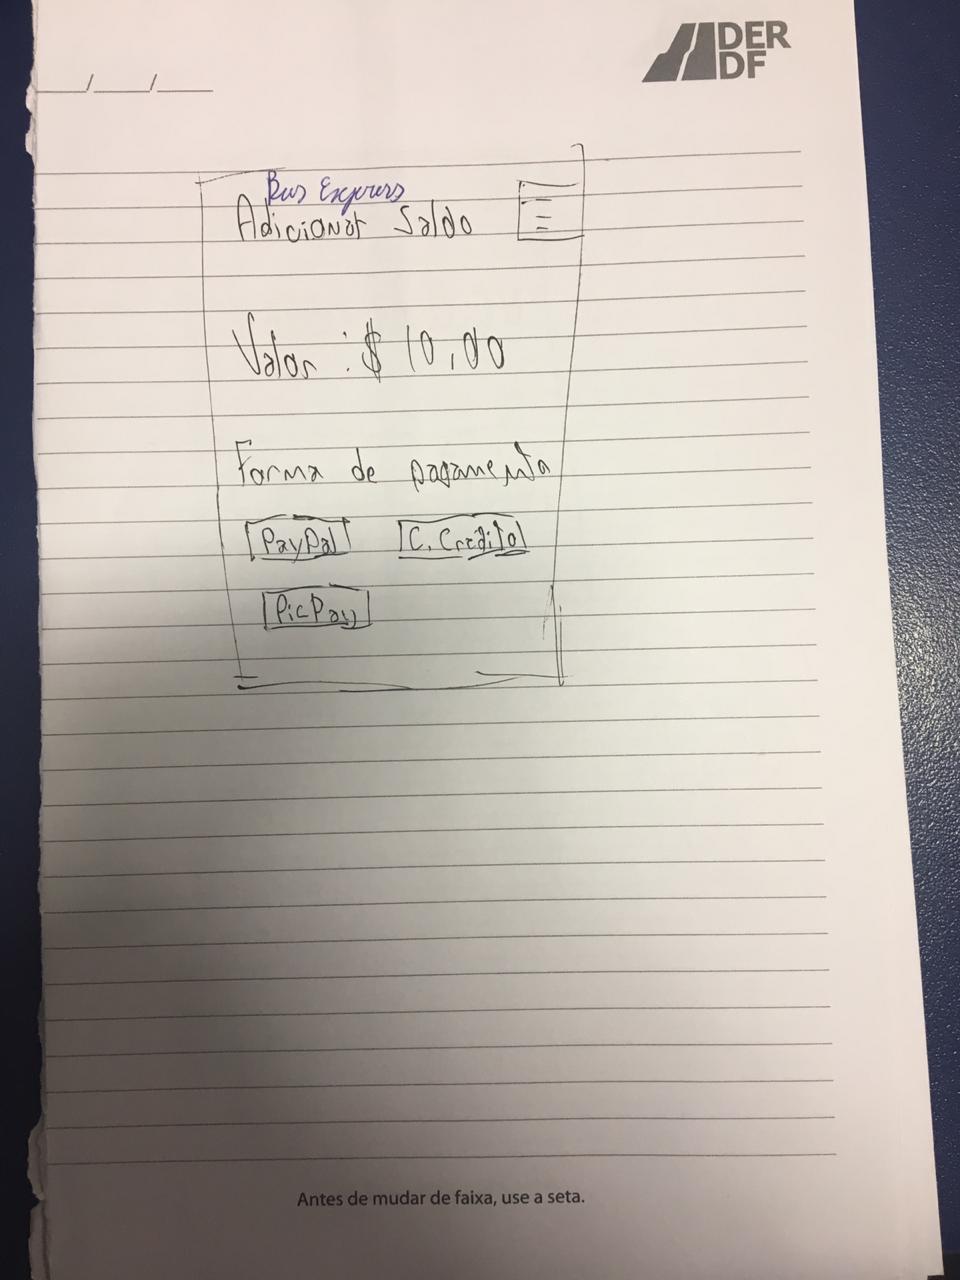 DER
DF
__/__/__
Bus Express
Adicionar Saldo
Valor : $ 10,00
Forma de pagamento
PayPal C. Credito
PicPay
Antes de mudar de faixa, use a seta.